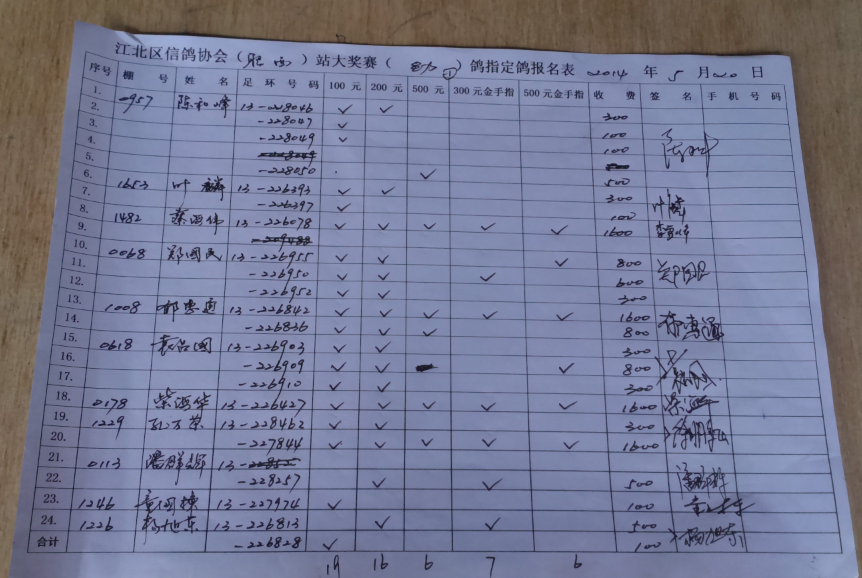 江北区信鸽协会（肥西）站大奖赛（幼①）鸽指定鸽报名表 2014 年 5 月20 日
序号 棚 号 姓 名 足 环 号 码 100 元 200 元 500 元 300 元金手指 500 元金手指 收 费 签 名 手 机 号 码
1. 0957 陈和峰 13-228046 ✓ ✓ 300
2. -228047 ✓ 100
3. -228049 ✓ 100
4.
5. -228050 ✓ 500
6. 1653 叶麟 13-226393 ✓ ✓ 300
7. -226397 ✓ 100
8. 1482 蔡海伟 13-226078 ✓ ✓ ✓ ✓ ✓ 1600
9.
10. 0068 郑国民 13-226955 ✓ ✓ ✓ 800
11. -226950 ✓ ✓ ✓ 600
12. -226952 ✓ ✓ 300
13. 1008 13-226842 ✓ ✓ ✓ ✓ ✓ 1600
14. -226836 ✓ ✓ ✓ 800
15. 0618 袁品国 13-226903 ✓ ✓ 300
16. -226909 ✓ ✓ ✓ 800
17. -226910 ✓ ✓ 300
18. 0178 柴海华 13-226427 ✓ ✓ ✓ ✓ ✓ 1600
19. 1229 孔万荣 13-228462 ✓ ✓ 300
20. -227844 ✓ ✓ ✓ ✓ ✓ 1600
21. 0113 潘 13-
22. -228257 ✓ ✓ 500
23. 1246 童国栋 13-227974 ✓ 100
24. 1226 杨旭东 13-226813 ✓ ✓ 500 杨旭东
合计 -226828 ✓ 100
19 16 6 7 6